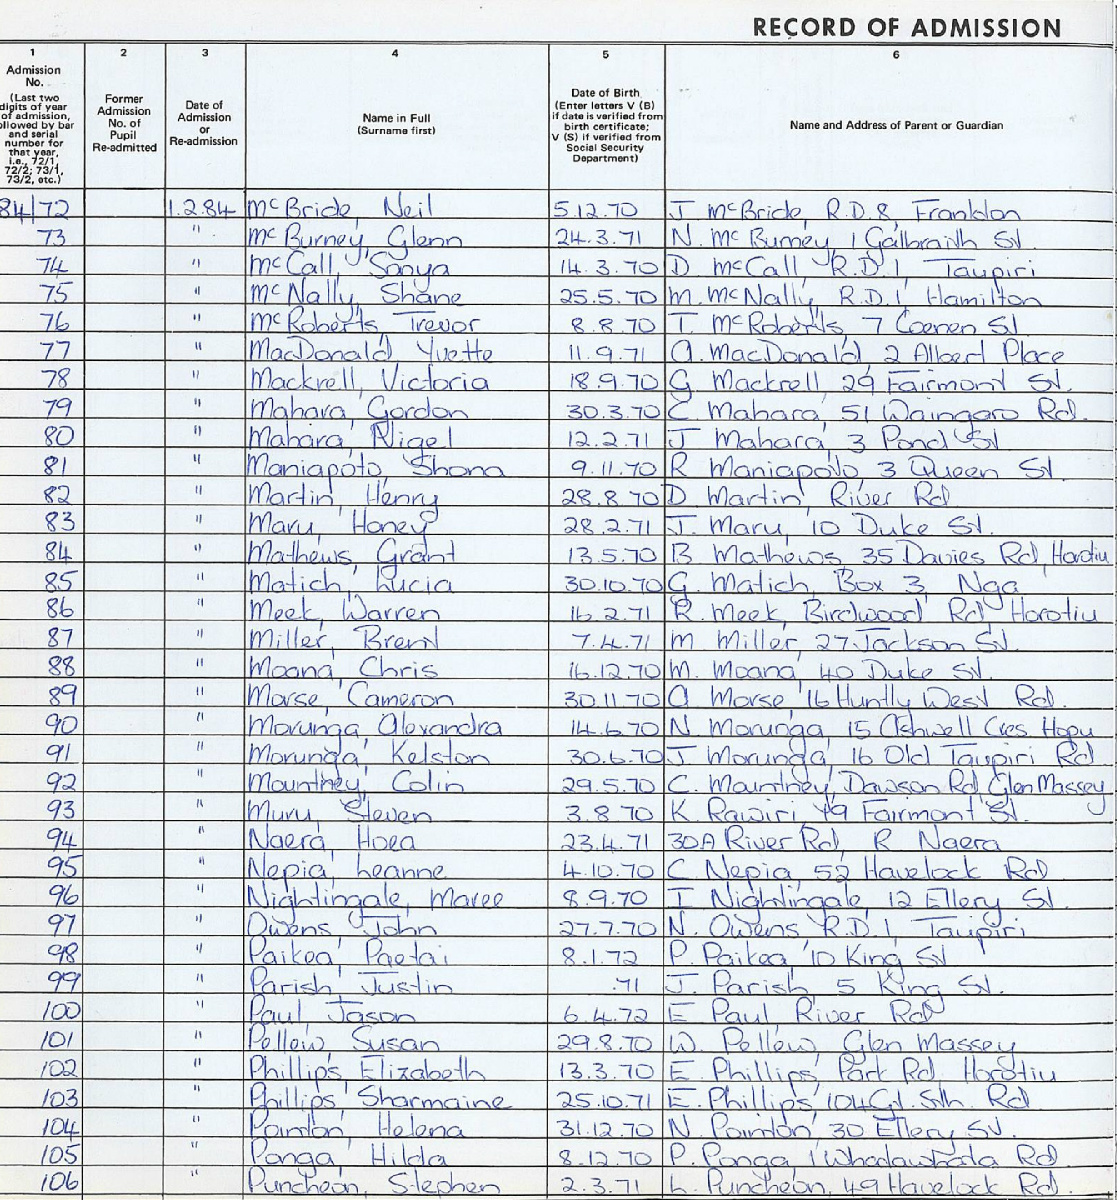 RECORD OF ADMISSION
1 2 3 4 5 6
Admission No. (Last two digits of year of admission, followed by bar and serial number for that year, i.e., 72/1, 72/2; 73/1, 73/2, etc.)
Former Admission No. of Pupil Re-admitted
Date of Admission or Re-admission
Name in Full (Surname first)
Date of Birth (Enter letters V (B) if date is verified from birth certificate; V (S) if verified from Social Security Department)
Name and Address of Parent or Guardian
84/72 1.2.84 McBride, Neil 5.12.70 J McBride, R.D.8, Frankton
73 " McBurney, Glenn 24.3.71 N. McBurney 1 Galbraith St
74 " McCall, Sonya 14.3.70 D. McCall, R.D.1, Taupiri
75 " McNally, Shane 25.5.70 M. McNally, R.D.1, Hamilton
76 " McRoberts, Trevor 8.8.70 T. McRoberts, 7 Coenen St
77 " MacDonald, Yvette 11.9.71 A. MacDonald, 2 Albert Place
78 " Mackrell, Victoria 18.9.70 G. Mackrell, 29 Fairmont St.
79 " Mahara, Gordon 30.3.70 C. Mahara, 51 Waingaro Rd.
80 " Mahara, Nigel 12.2.71 J Mahara, 3 Pond St
81 " Maniapoto, Shona 9.11.70 R Maniapoto, 3 Queen St
82 " Martin, Henry 28.8.70 D. Martin, River Rd
83 " Maru, Honey 28.2.71 J. Maru, 10 Duke St.
84 " Mathews, Grant 13.5.70 B Mathews, 35 Davies Rd, Horotiu
85 " Matich, Lucia 30.10.70 G. Matich, Box 3, Nga
86 " Meek, Warren 16.2.71 R. Meek, Birdwood Rd Horotiu
87 " Miller, Brent 7.4.71 M. Miller, 27 Jackson St.
88 " Moana, Chris 16.12.70 M. Moana, 40 Duke St.
89 " Morse, Cameron 30.11.70 A Morse, 16 Huntly West Rd.
90 " Morunga, Alexandra 14.6.70 N. Morunga, 15 Ashwell Cres Hopu
91 " Morunga, Kelston 30.6.70 J. Morunga, 16 Old Taupiri Rd
92 " Mountney, Colin 29.5.70 C. Mountney, Dawson Rd, Glen Massey
93 " Muru, Steven 3.8.70 K Rawiri, 49 Fairmont St.
94 " Naera, Hoea 23.4.71 30A River Rd, R Naera
95 " Nepia, Leanne 4.10.70 C Nepia, 52 Havelock Rd
96 " Nightingale, Maree 8.9.70 I Nightingale, 12 Ellery St.
97 " Owens, John 27.7.70 N. Owens, R.D.1, Taupiri
98 " Paikea, Paetai 8.1.72 P. Paikea, 10 King St
99 " Parish, Justin .71 J. Parish, 5 King St.
100 " Paul, Jason 6.4.72 E Paul, River Rd
101 " Pellew, Susan 29.8.70 W. Pellew, Glen Massey
102 " Phillips, Elizabeth 13.3.70 E. Phillips, Park Rd. Horotiu
103 " Phillips, Sharmaine 25.10.71 E. Phillips, 104 Gt. Sth. Rd
104 " Pointon, Helena 31.12.70 N. Pointon, 30 Ellery St.
105 " Ponga, Hilda 8.12.70 P. Ponga, 1 Whatawhata Rd
106 " Puncheon, Stephen 2.3.71 L. Puncheon, 49 Havelock Rd.